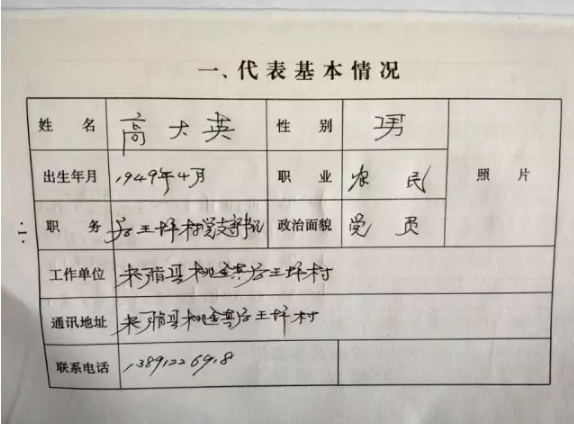 一、代表基本情况
姓名 高大英 性别 男 照片
出生年月 1949年4月 职业 农民
职务 后王坪村党支部书记 政治面貌 党员
工作单位 米脂县桃镇后王坪村
通讯地址 米脂县桃镇后王坪村
联系电话
·1·